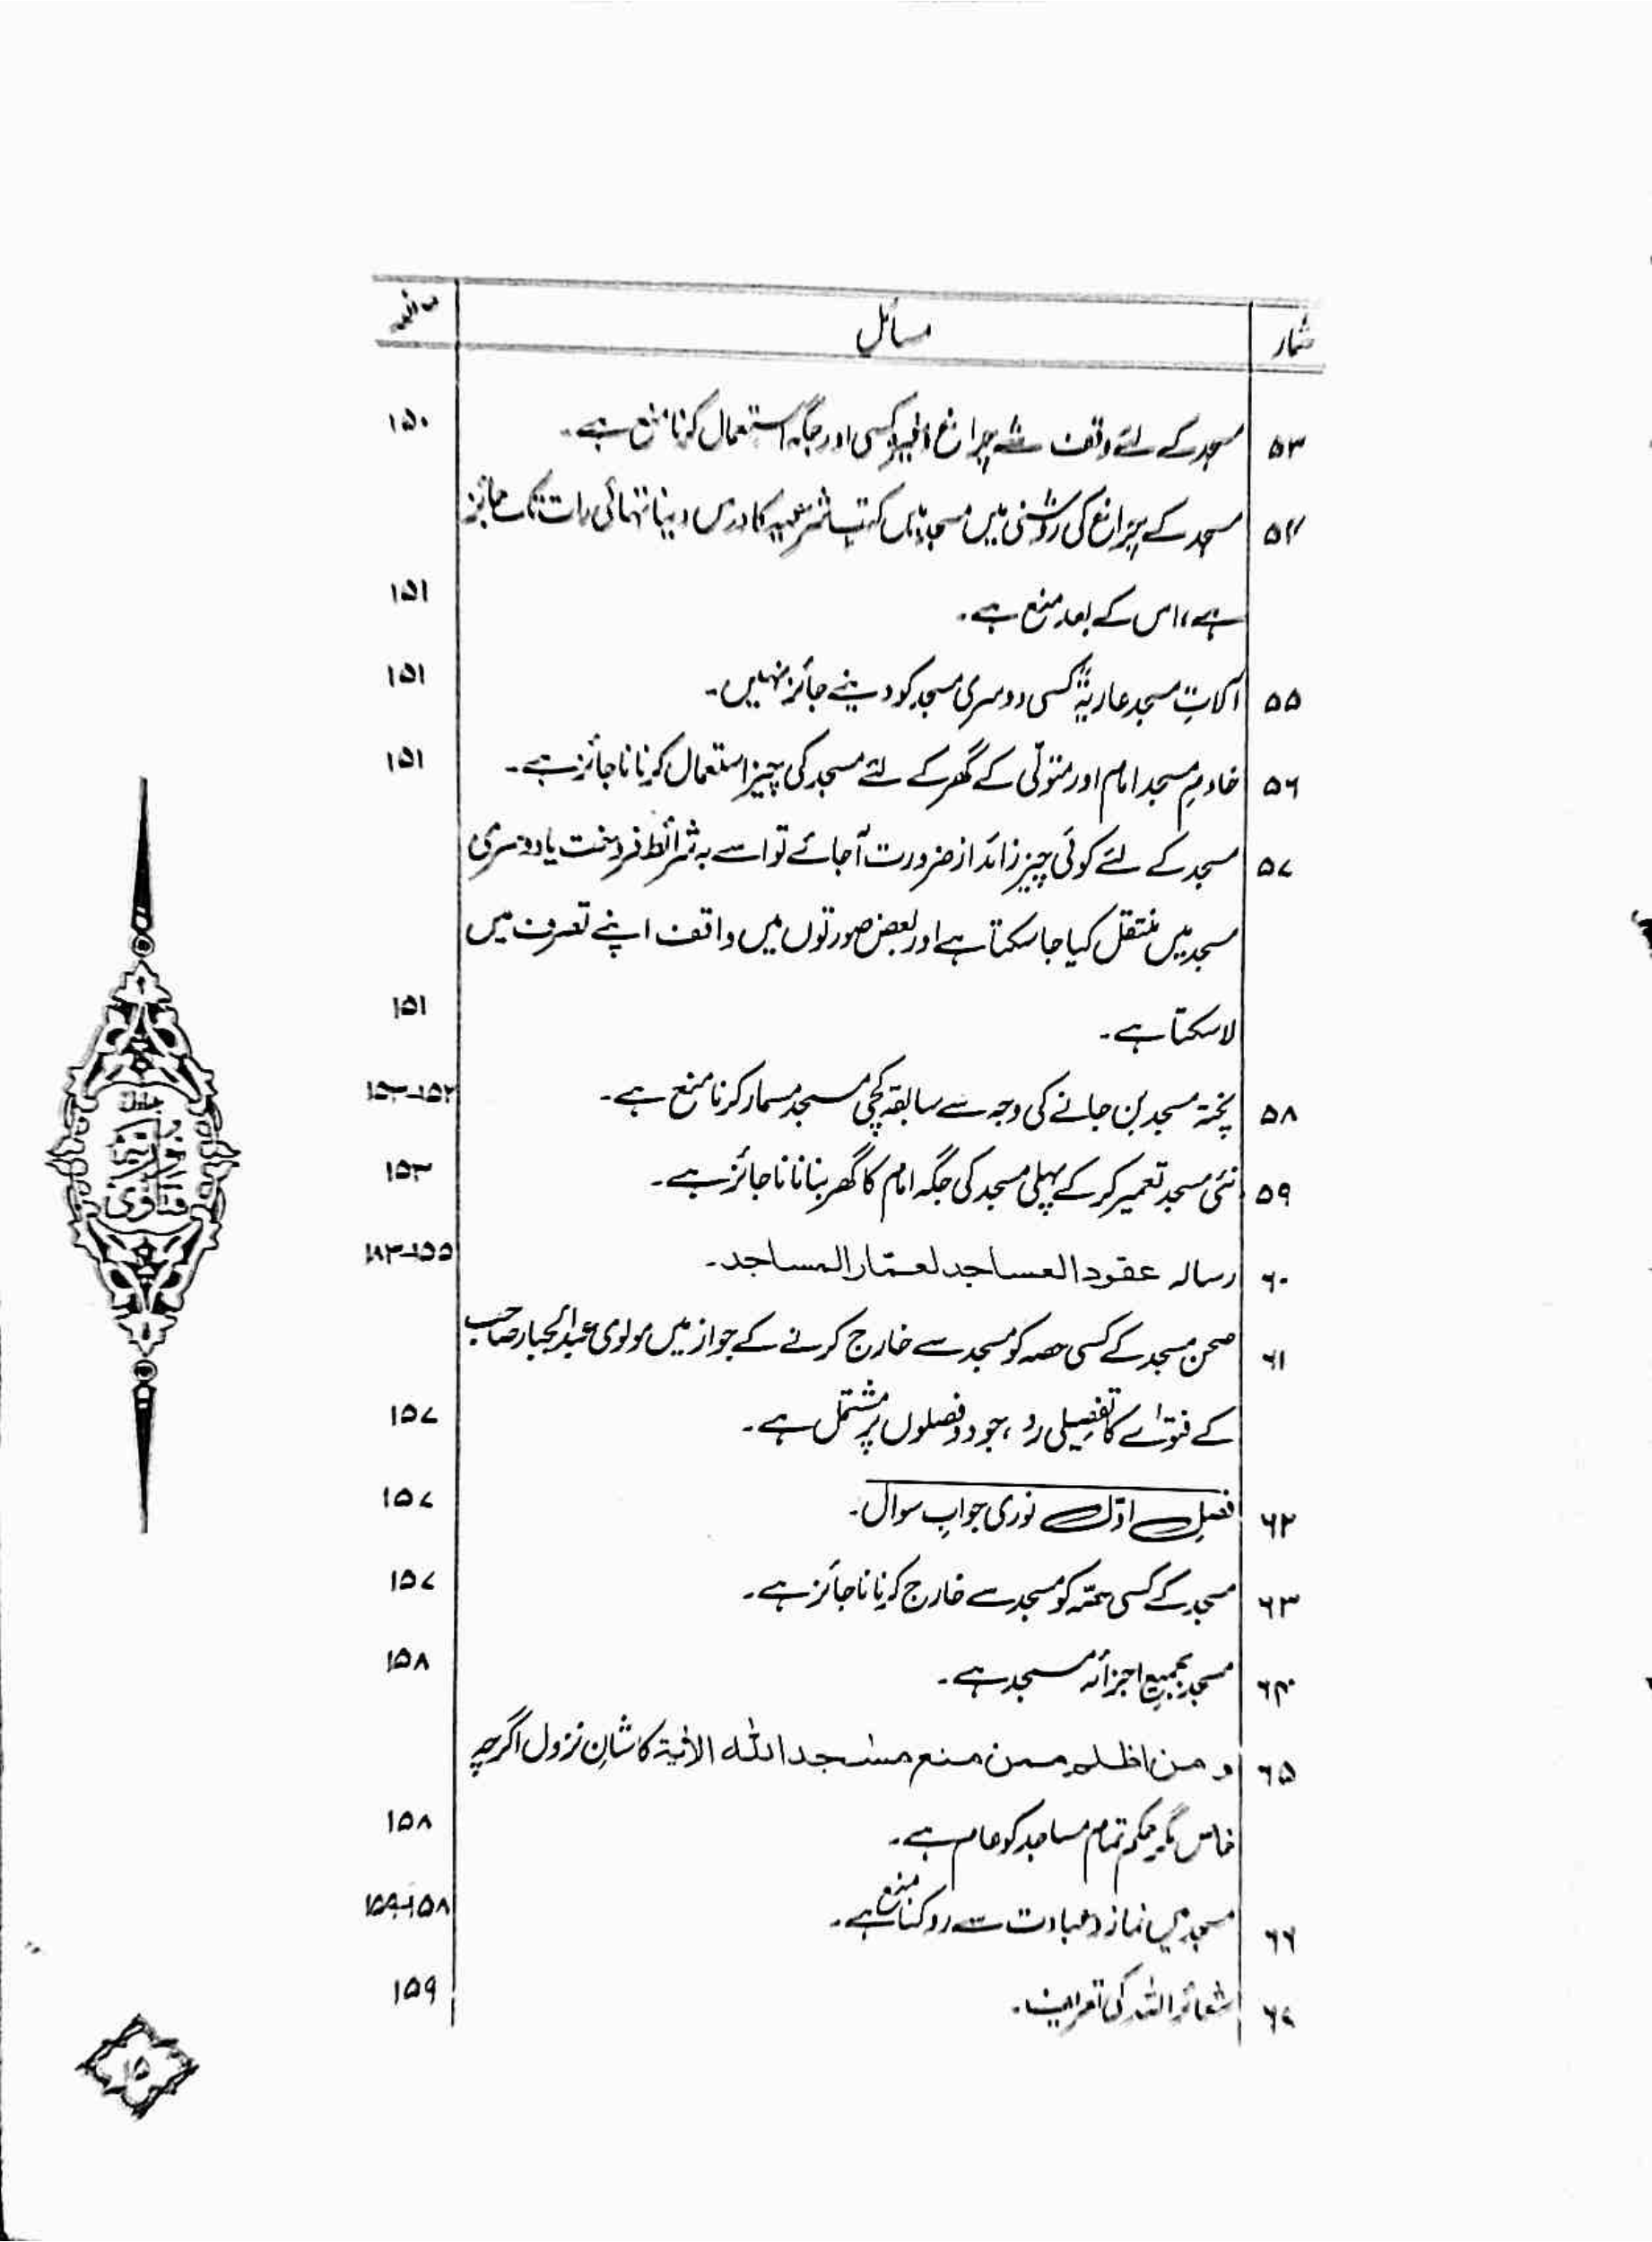 شمار مسائل صفحہ
۵۳ مسجد کے لئے وقف شے چراغ وغیرہ کسی اور جگہ استعمال کرنا منع ہے۔ ۱۵۰
۵۴ مسجد کے چراغ کی روشنی میں مسجد میں کتبِ شرعیہ کا درس دینا تہائی رات تک جائز
ہے، اس کے بعد منع ہے۔ ۱۵۱
۵۵ آلاتِ مسجد عاریۃً کسی دوسری مسجد کو دینے جائز نہیں۔ ۱۵۱
۵۶ خادمِ مسجد امام اور متولّی کے گھر کے لئے مسجد کی چیز استعمال کرنا ناجائز ہے۔ ۱۵۱
۵۷ مسجد کے لئے کوئی چیز زائد از ضرورت آجائے تو اسے بہ شرائط فروخت یا دوسری
مسجد میں منتقل کیا جا سکتا ہے اور بعض صورتوں میں واقف اپنے تصرف میں
لا سکتا ہے۔ ۱۵۱
۵۸ پختہ مسجد بن جانے کی وجہ سے سابقہ کچی مسجد مسمار کرنا منع ہے۔ ۱۵۲-۱۵۳
۵۹ نئی مسجد تعمیر کر کے پہلی مسجد کی جگہ امام کا گھر بنانا ناجائز ہے۔ ۱۵۳
۶۰ رسالہ عقود العساجد لعمّار المساجد۔ ۱۵۵-۱۸۳
۶۱ صحنِ مسجد کے کسی حصہ کو مسجد سے خارج کرنے کے جواز میں مولوی عبدالجبار صاحب
کے فتوٰے کا تفصیلی رد، جو دو فصلوں پر مشتمل ہے۔ ۱۵۷
۶۲ فصلِ اوّل نوری جوابِ سوال۔ ۱۵۷
۶۳ مسجد کے کسی حصّہ کو مسجد سے خارج کرنا ناجائز ہے۔ ۱۵۷
۶۴ مسجد بجمیع اجزائہ مسجد ہے۔ ۱۵۸
۶۵ و من اظلم ممن منع مسٰجد اللہ الاٰیۃ کا شانِ نزول اگرچہ
خاص مگر حکم تمام مساجد کو عام ہے۔ ۱۵۸
۶۶ مسجد میں نماز و عبادت سے روکنا منع ہے۔ ۱۵۸-۱۵۹
۶۷ شعائر اللہ کی تعریف۔ ۱۵۹
فتاوی نوریہ
۱۵